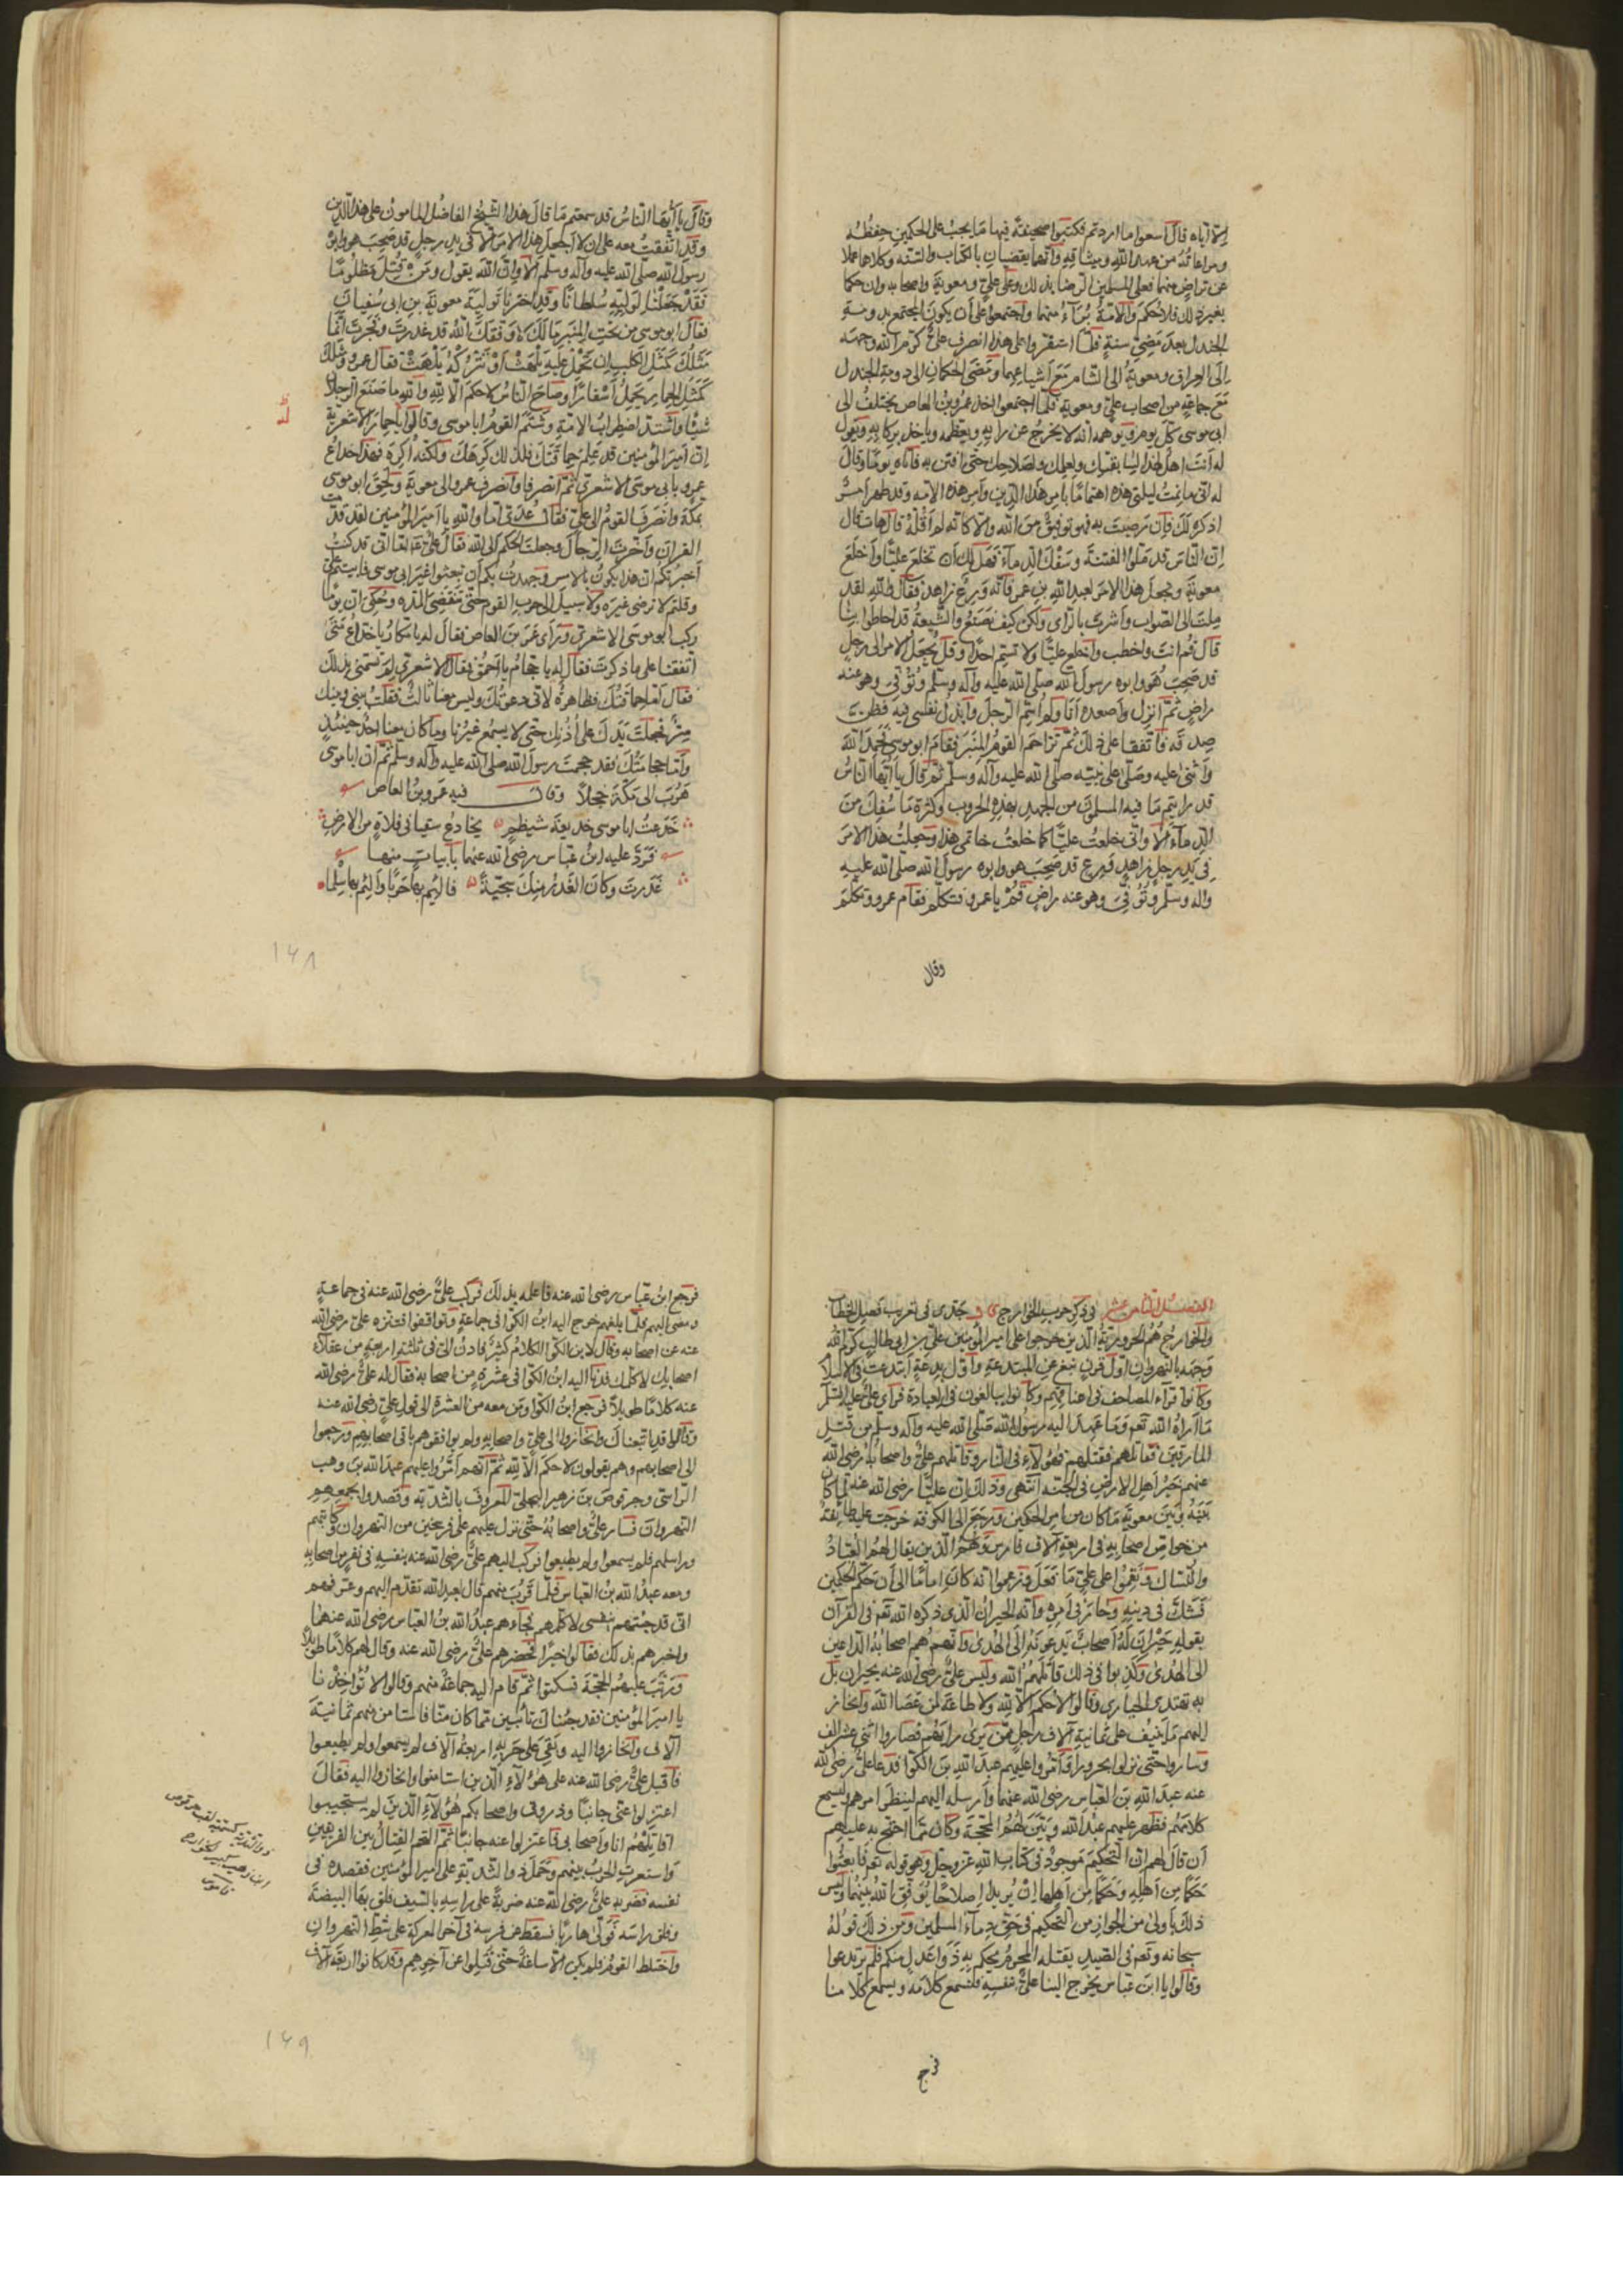 الا اياه قال اسعوا ما اردتم فكتبوا صحيفة فيها ما يجب على الحكمين حفظه
ومراعاته من عهد الله وميثاقه وانهما يقضيان بالكتاب والسنة وكلاهما عملا
عن تراض منهما فعلى المسلمين الرضا بذلك وعلى علي ومعوية واصحابه وان حكما
بغير ذلك فلا حكم والامة برآء منهما واجتمعوا على ان يكون المجتمع بدومة
الجندل بعد مضي سنة فلما استقروا على هذا انصرف علي كرم الله وجهه
الى العراق ومعوية الى الشام مع اشياعهما ومضى الحكمان الى دومة الجندل
مع جماعة من اصحاب علي ومعوية فلما اجتمعوا اخذ عمرو بن العاص يختلف الى
ابي موسى كل يوم ويوهمه انه لا يخرج عن رايه ويعظمه وياخذ بركابه ويقول
له انت اهل لهذا لسابقتك ولعلمك ولصلاحك حتى افتن به فاتاه يوما وقال
له اني ما نمت ليلتي هذه اهتماما بامر هذا الدين وامر هذه الامة وقد ظهر امر
اذكره لك فان رضيت به فهو توفيق من الله والا كانه لم اقله قال هات قال
ان الناس قد ملوا الفتنة وسفك الدماء فهل لك ان تخلع عليا واخلع
معوية ونجعل هذا الامر لعبد الله بن عمر فانه ورع زاهد فقال لله لقد
ملت الى الصواب واشرت بالراى ولكن كيف نصنع والشيعة قد احاطوا بنا
قال قم انت واخطب واخلع عليا ولا تسم احدا وقل نجعل الامر الى رجل
قد صحب هو وابوه رسول الله صلى الله عليه وآله وسلم وتوفي وهو عنه
راض ثم انزل واصعد انا ولم اسم الرجل وابذل نفسي فيه فظن
صدقه فاتفقا على ذلك ثم تزاحم القوم المنبر فقام ابو موسى فحمد الله
واثنى عليه وصلى على نبيه صلى الله عليه وآله وسلم ثم قال يا ايها الناس
قد رايتم ما فيه المسلمون من الجهد بهذه الحروب وكثرة ما سفك من
الدماء الا واني خلعت عليا كما خلعت خاتمي هذا وجعلت هذا الامر
في يد رجل زاهد ورع قد صحب هو وابوه رسول الله صلى الله عليه
وآله وسلم وتوفي وهو عنه راض قم يا عمرو فتكلم فقام عمرو وتكلم
وقال
وقال يا ايها الناس قد سمعتم ما قال هذا الشيخ الفاضل المامون على هذا الدين
وقد اتفقت معه على ان لا اجعل هذا الامر الا في يد رجل قد صحب هو وابوه
رسول الله صلى الله عليه وآله وسلم الا وان الله يقول ومن قتل مظلوما
فقد جعلنا لوليه سلطانا وقد اخترنا تولية معوية بن ابي سفيان
فقال ابو موسى من تحت المنبر مالك لا وفقك الله قد غدرت وفجرت انما
مثلك كمثل الكلب ان تحمل عليه يلهث او تتركه يلهث فقال عمرو ومثلك
كمثل الحمار يحمل اسفارا وصاح الناس لا حكم الا لله والله ما صنع الرجلان
شيئا واشتد اضطراب الامة وشتم القوم ابا موسى وقالوا يا حمار الاشعرية
ان امير المؤمنين قد علم حماقتك فلذلك كرهك ولكنه اكره فهذا خداع
عمرو بابي موسى الاشعري ثم انصرفا وانصرف عمرو الى معوية ولحق ابو موسى
بمكة وانصرف القوم الى علي فقال عدي اما والله يا امير المؤمنين لقد قدمت
القران واخرت الرجال وجعلت الحكم الى الله فقال علي اني قد كنت
اخبرتكم ان هذا يكون بالامس وجهدت بكم ان تبعثوا غير ابي موسى فابيتم علي
وقلتم لا نرضى غيره ولا سبيل الى حرب القوم حتى تنقضي المدة وحكي ان يوما
ركب ابو موسى الاشعري وراى عمرو بن العاص فقال له يا مكار يا خداع متى
اتفقنا على ما ذكرت فقال له يا حجام يا احمق فقال الاشعري لم تسمني بذلك
فقال اما حماقتك فظاهرة لاني دعوتك وليس معنا ثالث فقلت بيني وبينك
سر فجعلت يدك على اذنك حتى لا يسمع غيرنا وما كان معنا احد حينئذ
واما حجامتك فقد حجمت رسول الله صلى الله عليه وآله وسلم ثم ان ابا موسى
هرب الى مكة خجلا وقال فيه عمرو بن العاص
خدعت ابا موسى خديعة شيظم يخادع سقبا في فلاة من الارض
فرد عليه ابن عباس رضي الله عنهما بابيات منها
غدرت وكان الغدر منك سجية
١٤٨
الفصل الثامن عشر في ذكر حرب الخوارج قال جدي في تقريب فصل الخطاب
والخوارج هم الحرورية الذين خرجوا على امير المؤمنين علي بن ابي طالب كرم الله
وجهه بالنهروان اول قرن نبغ من المبتدعة واول بدعة ابتدعت في الاسلام
وكانوا قراء المصاحف في اعناقهم وكانوا يبالغون في العبادة فراى علي عليه السلام
ما اراه الله تعم وما عهد اليه رسول الله صلى الله عليه وآله وسلم من قتل
المارقين فقاتلهم فقتلهم فهؤلاء في النار وقاتلهم علي واصحابه رضي الله
عنهم خير اهل الارض في الجنة انتهى وذلك ان عليا رضي الله عنه لما كان
بينه وبين معوية ما كان من امر الحكمين ورجع الى الكوفة خرجت عليه طائفة
من خواص اصحابه في اربعة آلاف فارس وهم الذين يقال لهم العباد
والنساك ونقموا على علي ما فعل وزعموا انه كان اماما الى ان حكم الحكمين
فشك في دينه وحار في امره وانه الحيران الذي ذكره الله تعم في القرآن
بقوله حيران له اصحاب يدعونه الى الهدى وانهم هم اصحابه الداعين
الى الهدى وكذبوا في ذلك قاتلهم الله وليس علي رضي الله عنه بحيران بل
به تهتدي الحيارى وقالوا لا حكم الا لله ولا طاعة لمن عصا الله وانحاز
اليهم ما ينيف على ثمانية آلاف رجل ممن يرى رايهم فصاروا اثني عشر الف
وساروا حتى نزلوا بحرورا وامروا عليهم عبد الله بن الكوا فدعا علي رضي الله
عنه عبد الله بن العباس رضي الله عنهما وارسله اليهم لينظر امرهم ليسمع
كلامهم فظهر عليهم عبد الله وبين لهم الحجة وكان مما احتج به عليهم
ان قال لهم ان التحكيم موجود في كتاب الله عز وجل وهو قوله تعم فابعثوا
حكما من اهله وحكما من اهلها ان يريدا اصلاحا يوفق الله بينهما وليس
ذلك باولى من الجواز من التحكيم في حق دماء المسلمين ومن ذلك قوله
سبحانه وتعم في الصيد يقتله المحرم يحكم به ذوا عدل منكم فلم يرتدعوا
وقالوا يا ابن عباس يخرج الينا علي بنفسه فلنسمع كلامه ويسمع كلامنا
فرجع
فرجع ابن عباس رضي الله عنه فاعلمه بذلك فركب علي رضي الله عنه في جماعة
ومضى اليهم فلما بلغهم خرج اليه ابن الكوا في جماعة وتواقفوا علي رضي الله
عنه عن اصحابه وقال لابن الكوا الكلام كثير فادن الي في ثلثة اربعة من عقلاء
اصحابك لاكلمك فدنا اليه ابن الكوا في عشرة من اصحابه فقال له علي رضي الله
عنه كلاما طويلا فرجع ابن الكوا ومن معه من العشرة الى قول علي رضي الله عنه
وقالوا قد اتبعناك وانحازوا الى علي واصحابه ولم يوافقوهم باقي اصحابهم ورجعوا
الى اصحابهم وهم يقولون لا حكم الا لله ثم انهم امروا عليهم عبد الله بن وهب
الراسبي وحرقوص بن زهير البجلي المعروف بالثدية وقصدوا بجمعهم
النهروان فسار علي واصحابه حتى نزل عليهم على فرسخين من النهروان وكاتبهم
وراسلهم فلم يسمعوا ولم يطيعوا فركب اليهم علي رضي الله عنه بنفسه في نفر من اصحابه
ومعه عبد الله بن العباس فلما قرب منهم قال لعبد الله تقدم اليهم وعرفهم
اني قد جئتهم بنفسي لاكلمهم فجاءهم عبد الله بن العباس رضي الله عنهما
واخبرهم بذلك فقالوا خيرا فحضرهم علي رضي الله عنه وقال لهم كلاما طويلا
ورتب عليهم الحجة فسكتوا ثم قام اليه جماعة منهم وقالوا لا تؤاخذنا
يا امير المؤمنين فقد جئناك تائبين مما كان منا فاستامن منهم ثمانية
آلاف وانحازوا اليه وبقي على حربه اربعة آلاف لم يسمعوا ولم يطيعوا
فاقبل علي رضي الله عنه على هؤلاء الذين استامنوا وانحازوا اليه فقال
اعتزلوا عني جانبا وذروني واصحابكم هؤلاء الذين لم يستجيبوا
اقاتلهم انا واصحابي فاعتزلوا عنه جانبا ثم التحم القتال بين الفريقين
واستعرت الحرب بينهم وحمل ذو الثدية على امير المؤمنين فقصده في
نفسه فضربه علي رضي الله عنه ضربة على راسه بالسيف فلق بها البيضة
وفلق راسه فولى هاربا فسقط عن فرسه في آخر المعركة على شط النهروان
واختلط القوم فلم يكن الا ساعة حتى قتلوا عن آخرهم وقد كانوا اربعة آلاف
ذو الثدية كسمية لقب حرقوص
ابن زهير كبير الخوارج
قاموس
١٤٩